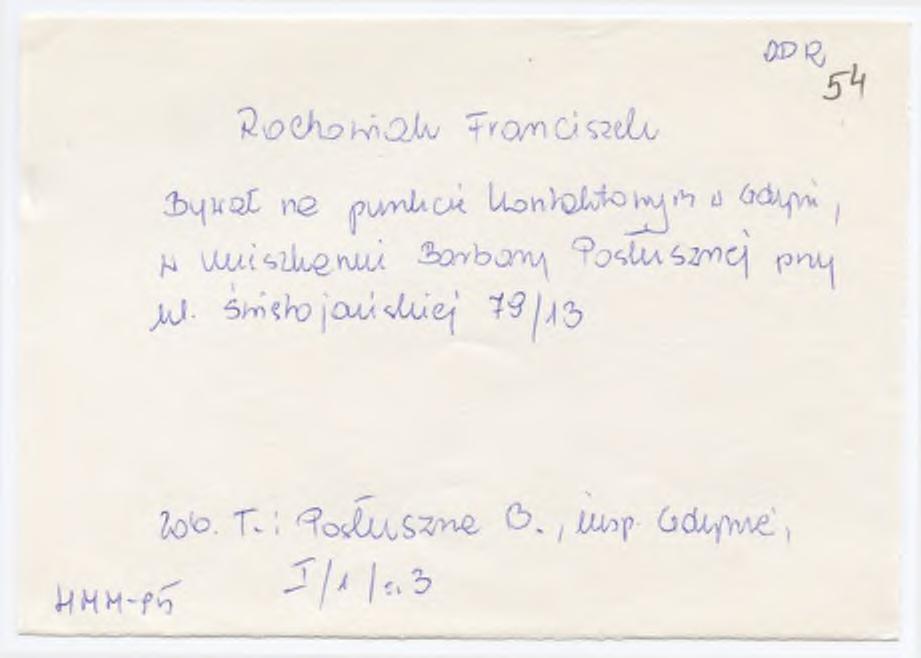 DDR
54
Rochowiak Franciszek
Bywał na punkcie kontaktowym w Gdyni,
w mieszkaniu Barbary Posłusznej przy
ul. Świętojańskiej 79/13
Zob. T.: Posłuszna B., insp. Gdynia,
I/1/s.3